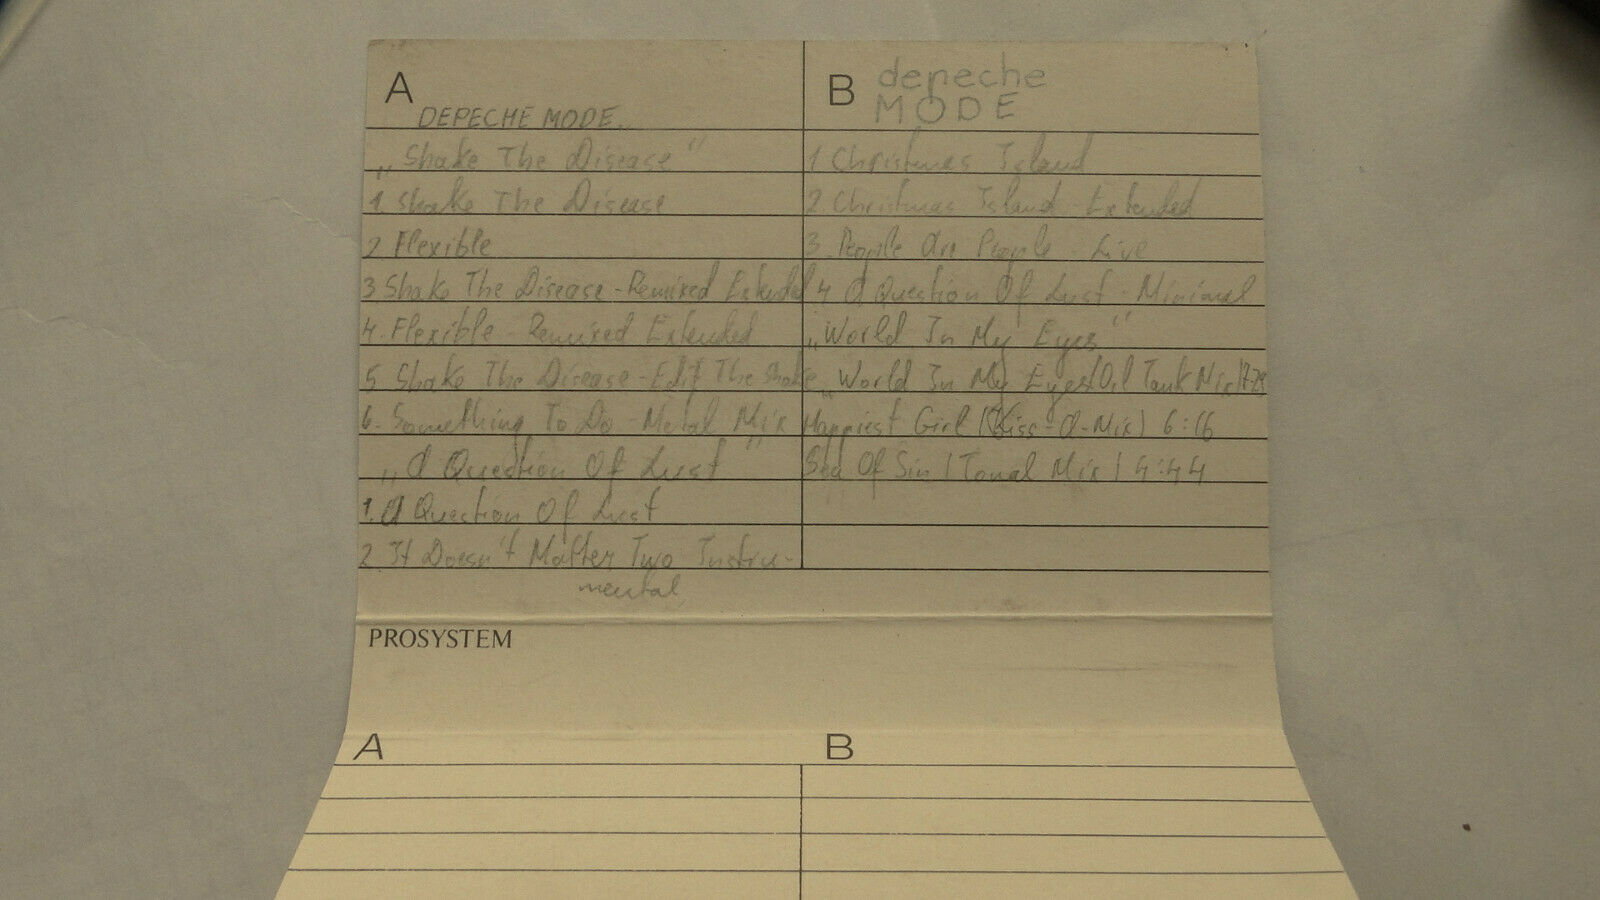 A
DEPECHE MODE.
„Shake The Disease"
1. Shake The Disease
2. Flexible
3 Shake The Disease - Remixed Extended
4. Flexible - Remixed Extended
5 Shake The Disease - Edit The Shake
6. Something To Do - Metal Mix
„A Question Of Lust"
1. A Question Of Lust
2. It Doesn't Matter Two Instru-
mental
B
depeche
MODE
1 Christmas Island
2. Christmas Island - Extended
3. People Are People - Live
4 A Question Of Lust - Minimal
„World In My Eyes"
„World In My Eyes (Oil Tank Mix)
Happiest Girl (Kiss-A-Mix) 6:16
Sea Of Sin (Tonal Mix) 4:44
PROSYSTEM
A
B